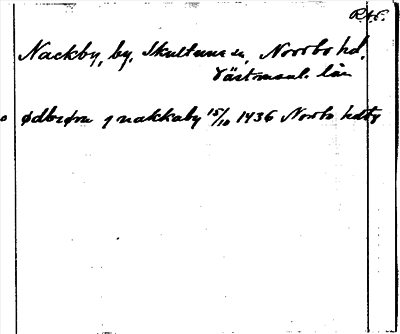 R.A.P.
Nackby, by, Skultuna sn, Norrbo hd.
Västmanl. län
ødbiørn j nakkaby 15/10 1436 Norrbo hdtg